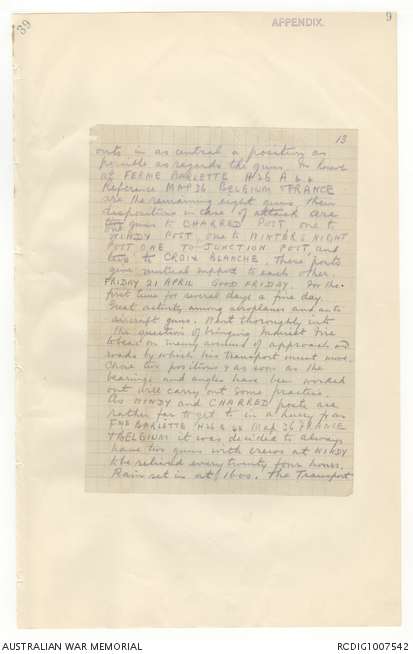 39
APPENDIX.
9
13
outs in as central a position as
possible as regards the guns. In house
at FERME BARLETTE H26 A 6.6
Reference MAP 36 BELGIUM & FRANCE
are the remaining eight guns, their
dispositions in case of attack are
one gun to CHARRED POST one to
WINDY POST, one to WINTERS NIGHT
POST ONE TO JUNCTION POST and
two to CROIX BLANCHE. These posts
give mutual support to each other.
FRIDAY 21 APRIL GOOD FRIDAY. For the
first time for several days a fine day.
Great activity among aeroplanes and anti
aircraft guns. Went thoroughly into
the question of bringing Indirect Fire
to bear on enemy avenues of approach and
roads by which his Transport must move.
Chose two positions & as soon as the
bearings and angles have been worked
out will carry out some practice.
As WINDY and CHARRED posts are
rather far to get to in a hurry from
FME BARLETTE H26 a 66 Map 36 FRANCE
& BELGIUM it was decided to always
have two guns with crews at WINDY
to be relieved every twenty four hours.
Rain set in at 1600. The Transport
AUSTRALIAN WAR MEMORIAL
RCDIG1007542